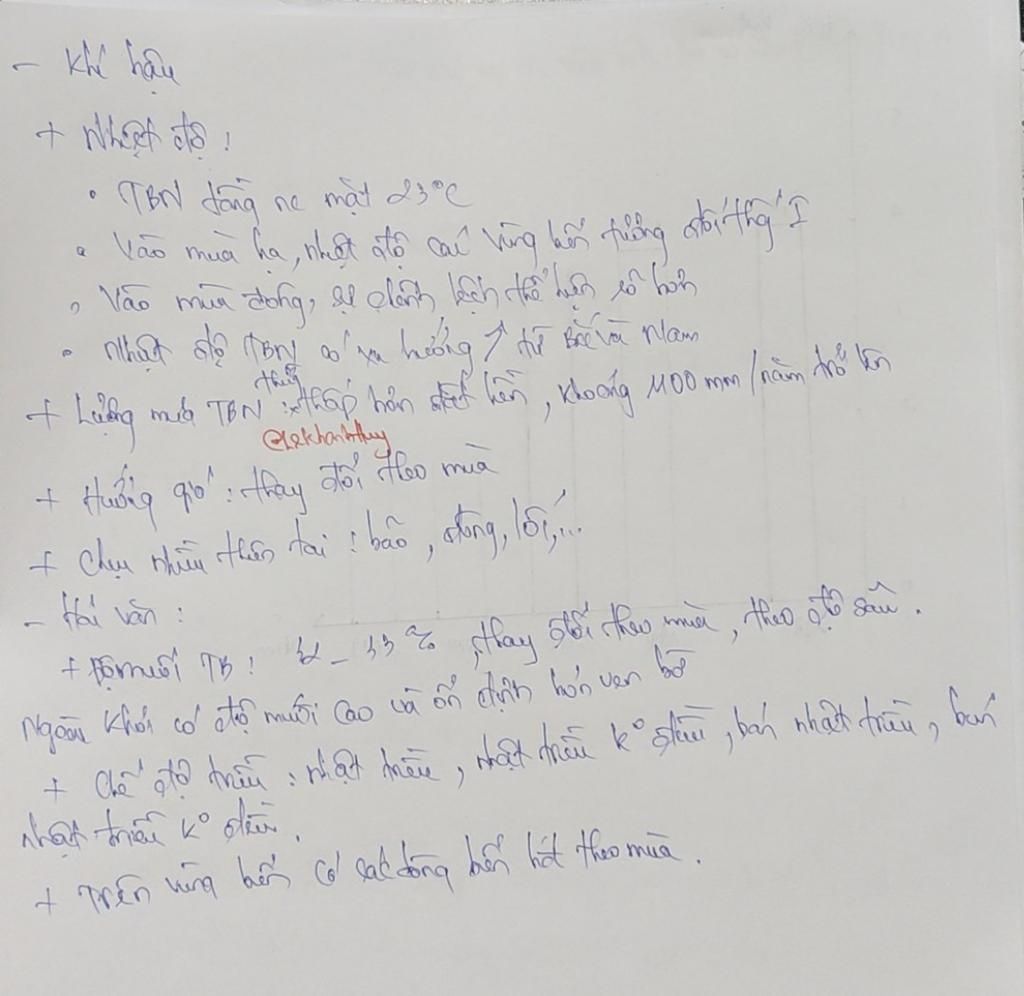 - Khí hậu
+ Nhiệt độ:
• TBN tầng nc mặt 23°C
• Vào mùa hạ, nhiệt độ các vùng biển tương đối thống I
• Vào mùa đông, sự chênh lệch thể hiện rõ hơn
• Nhiệt độ TBN có xu hướng ↑ từ Bắc vào Nam
+ Lượng mưa TBN: thấp hơn đất liền, khoảng 1100 mm/năm trở lên
@lekhanhthuy
+ Hướng gió: thay đổi theo mùa
+ Chịu nhiều thiên tai: bão, dông, lốc,...
- Hải văn:
+ Độ muối TB: 32 - 33 ‰, thay đổi theo mùa, theo độ sâu.
Ngoài khơi có độ muối cao và ổn định hơn ven bờ
+ Chế độ triều: nhật triều, nhật triều k° đều, bán nhật triều, bán
nhật triều k° đều.
+ Trên vùng biển có các dòng biển hđ theo mùa.